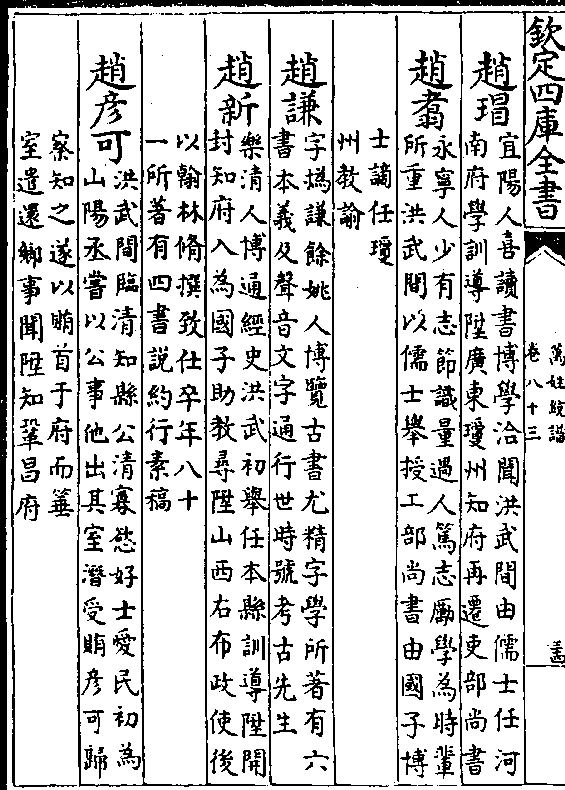 欽定四庫全書
萬姓統譜
卷八十三
趙瑁
宜陽人喜讀書博學洽聞洪武間由儒士任河
南府學訓導陞廣東瓊州知府再遷吏部尚書
趙翥
永寧人少有志節識量過人篤志勵學為時輩
所重洪武間以儒士舉授工部尚書由國子博
士謫任瓊
州教諭
趙謙
字撝謙餘姚人博覽古書尤精字學所著有六
書本義及聲音文字通行世時號考古先生
趙新
樂清人博通經史洪武初舉任本縣訓導陞開
封知府入為國子助教尋陞山西右布政使後
以翰林脩撰致仕卒年八十
一所著有四書說約行素稿
趙彦可
洪武間臨清知縣公清寡慾好士愛民初為
山陽丞嘗以公事他出其室潛受賄彦可歸
察知之遂以賄首于府而箠
室遣還鄉事聞陞知鞏昌府